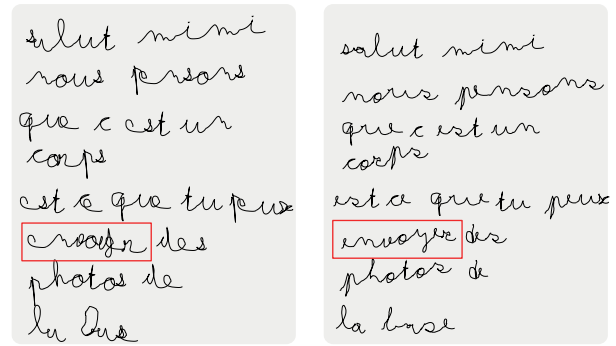 salut mimi
nous pensons
que c est un
corps
est ce que tu peux
des
photos de
la
salut mimi
nous pensons
que c est un
corps
est ce que tu peux
envoyer des
photos de
la base